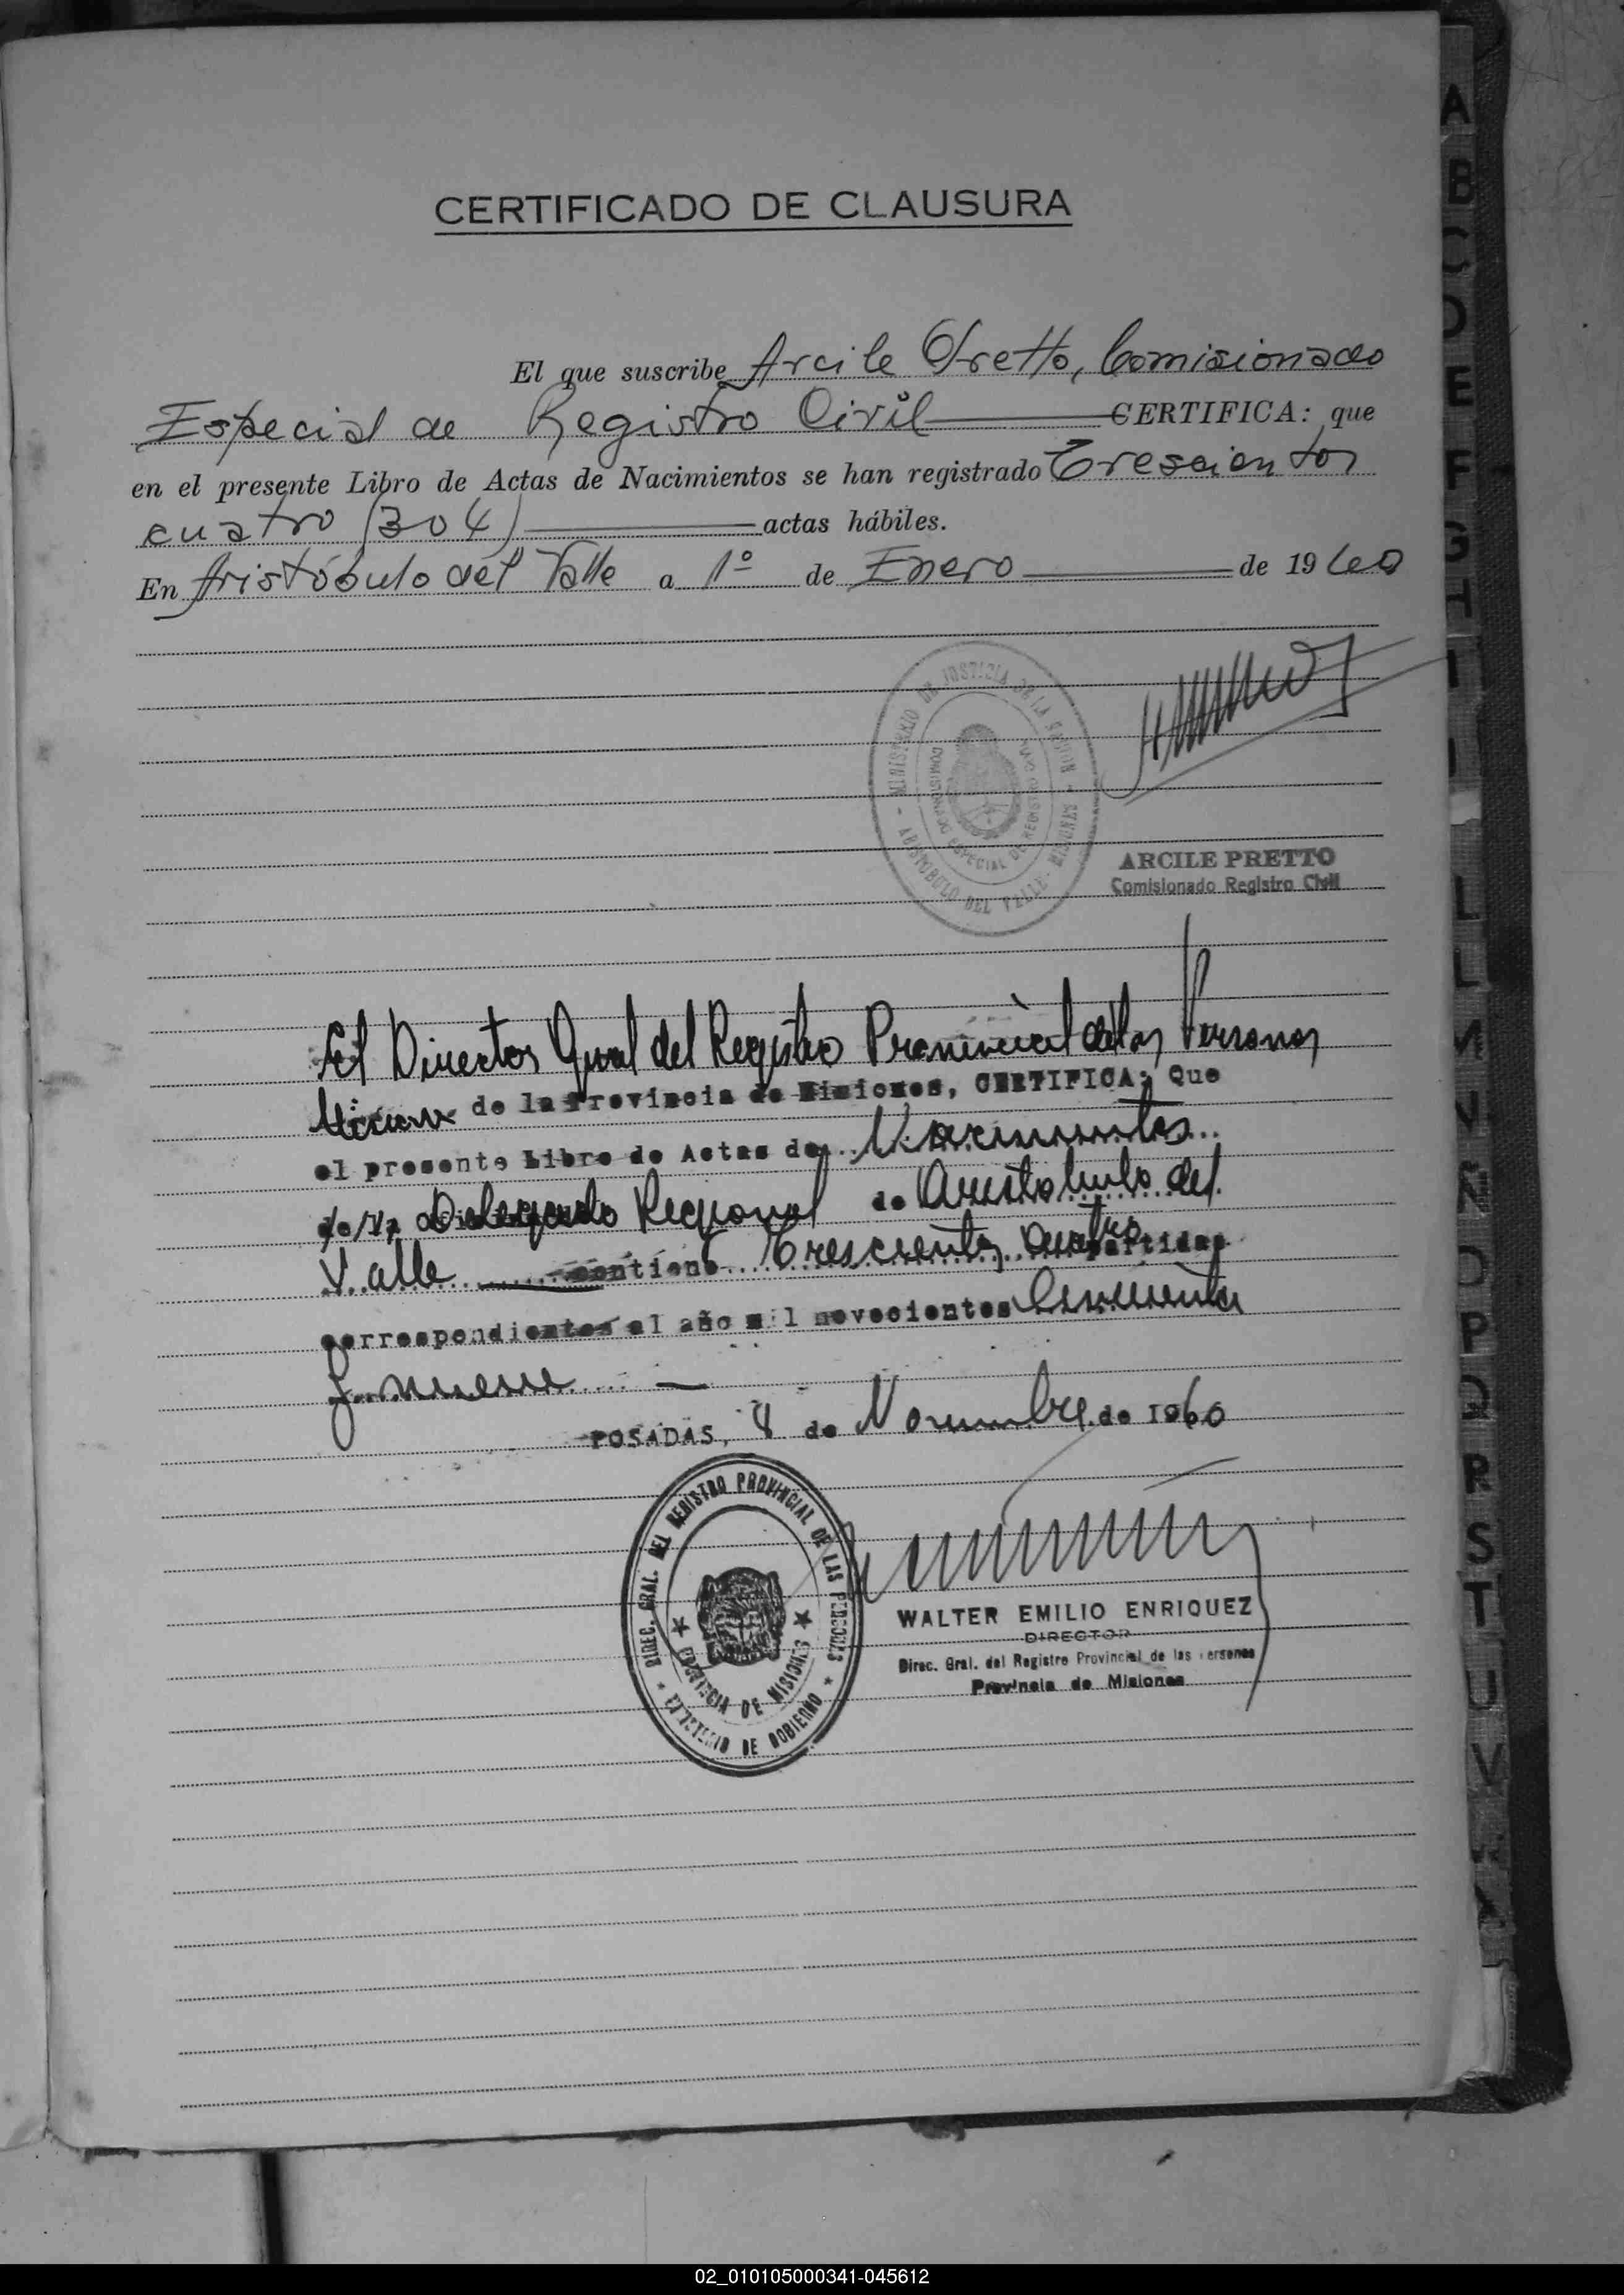 CERTIFICADO DE CLAUSURA
El que suscribe Arcile Pretto, Comisionado
Especial de Registro Civil CERTIFICA: que
en el presente Libro de Actas de Nacimientos se han registrado Trescientos
cuatro (304) actas hábiles.
En Aristóbulo del Valle a 1º de Enero de 1960
MINISTERIO DE JUSTICIA DE LA NACION - ARISTOBULO DEL VALLE - MISIONES
COMISIONADO ESPECIAL DE REGISTRO CIVIL
ARCILE PRETTO
Comisionado Registro Civil
El Director Gral del Registro Provincial de las Personas
de la Provincia de Misiones, CERTIFICA: Que
el presente Libro de Actas de Nacimientos
de la Delegado Regional de Aristobulo del
Valle contiene Trescientos cuatro partidas
correspondientes al año mil novecientos Cincuenta
y nueve
POSADAS, 8 de Noviembre de 1960
DIREC. GRAL. DEL REGISTRO PROVINCIAL DE LAS PERSONAS
PROVINCIA DE MISIONES
MINISTERIO DE GOBIERNO
WALTER EMILIO ENRIQUEZ
DIRECTOR
Direc. Gral. del Registro Provincial de las Personas
Provincia de Misiones
A
B
C
D
E
F
G
H
I
L
L
M
N
Ñ
O
P
Q
R
S
T
U
V
02_010105000341-045612